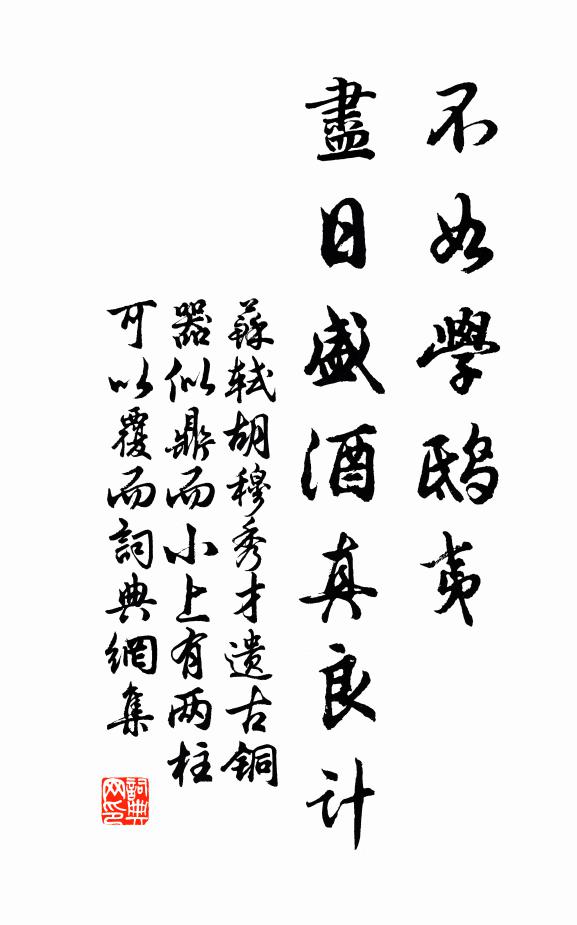 不如學鴟夷
盡日盛酒真良計
蘇軾胡穆秀才遺古銅
器似鼎而小上有两柱
可以覆而詞典網集
詞典网印